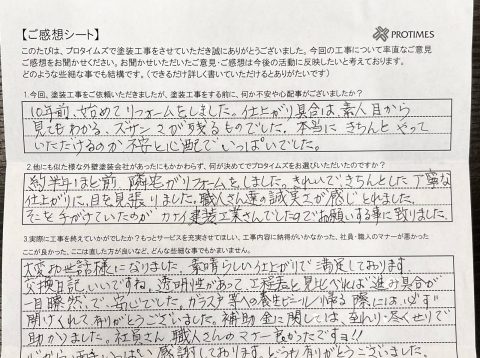 【ご感想シート】
PROTIMES
このたびは、プロタイムズで塗装工事をさせていただき誠にありがとうございました。今回の工事について率直なご意見
ご感想をお聞かせください。お聞かせいただいたご意見・ご感想は今後の活動に反映したいと考えております。
どのような些細な事でも結構です。(できるだけ詳しく書いていただけるとありがたいです)
1.今回、塗装工事をご依頼いただきましたが、塗装工事をする前に、何か不安や心配事がございましたか?
10年前、始めてリフォームをしました。仕上がり具合は、素人目から
見てもわかる、ズサンさが残るものでした。本当にきちんとやって
いただけるのか不安と心配でいっぱいでした。
2.他にも似た様な外壁塗装会社があったにもかかわらず、何が決めてでプロタイムズをお選びいただいたのですか?
約半年ほど前、隣宅がリフォームをしました。きれいできちんとした丁寧な
仕上がりに、目を見張りました。職人さん達の誠実さが感じとれました。
そこを手がけていたのがカナイ建装工業さんでしたのでお願いする事に致りました。
3.実際に工事を終えていかがでしたか?もっとサービスを充実させてほしい、工事内容に納得がいかなかった、社員・職人のマナーが悪かった
ここが良かった、ここは直した方が良いなど、どんな些細な事でもかまいません。
大変お世話様になりました。素晴らしい仕上がりで満足しております。
交換日記、いいですね、透明性があって、工程表と見比べれば進み具合が
一目瞭然で、安心でした。ガラス戸等への養生ビニール、帰る際には必ず
開けてくれて有りがとうございました。補助金に関しては、至れり・尽くせりで
助かりました。社員さん、職人さんのマナー良かったですョ!!
感謝しております。どうも有りがとうございました。